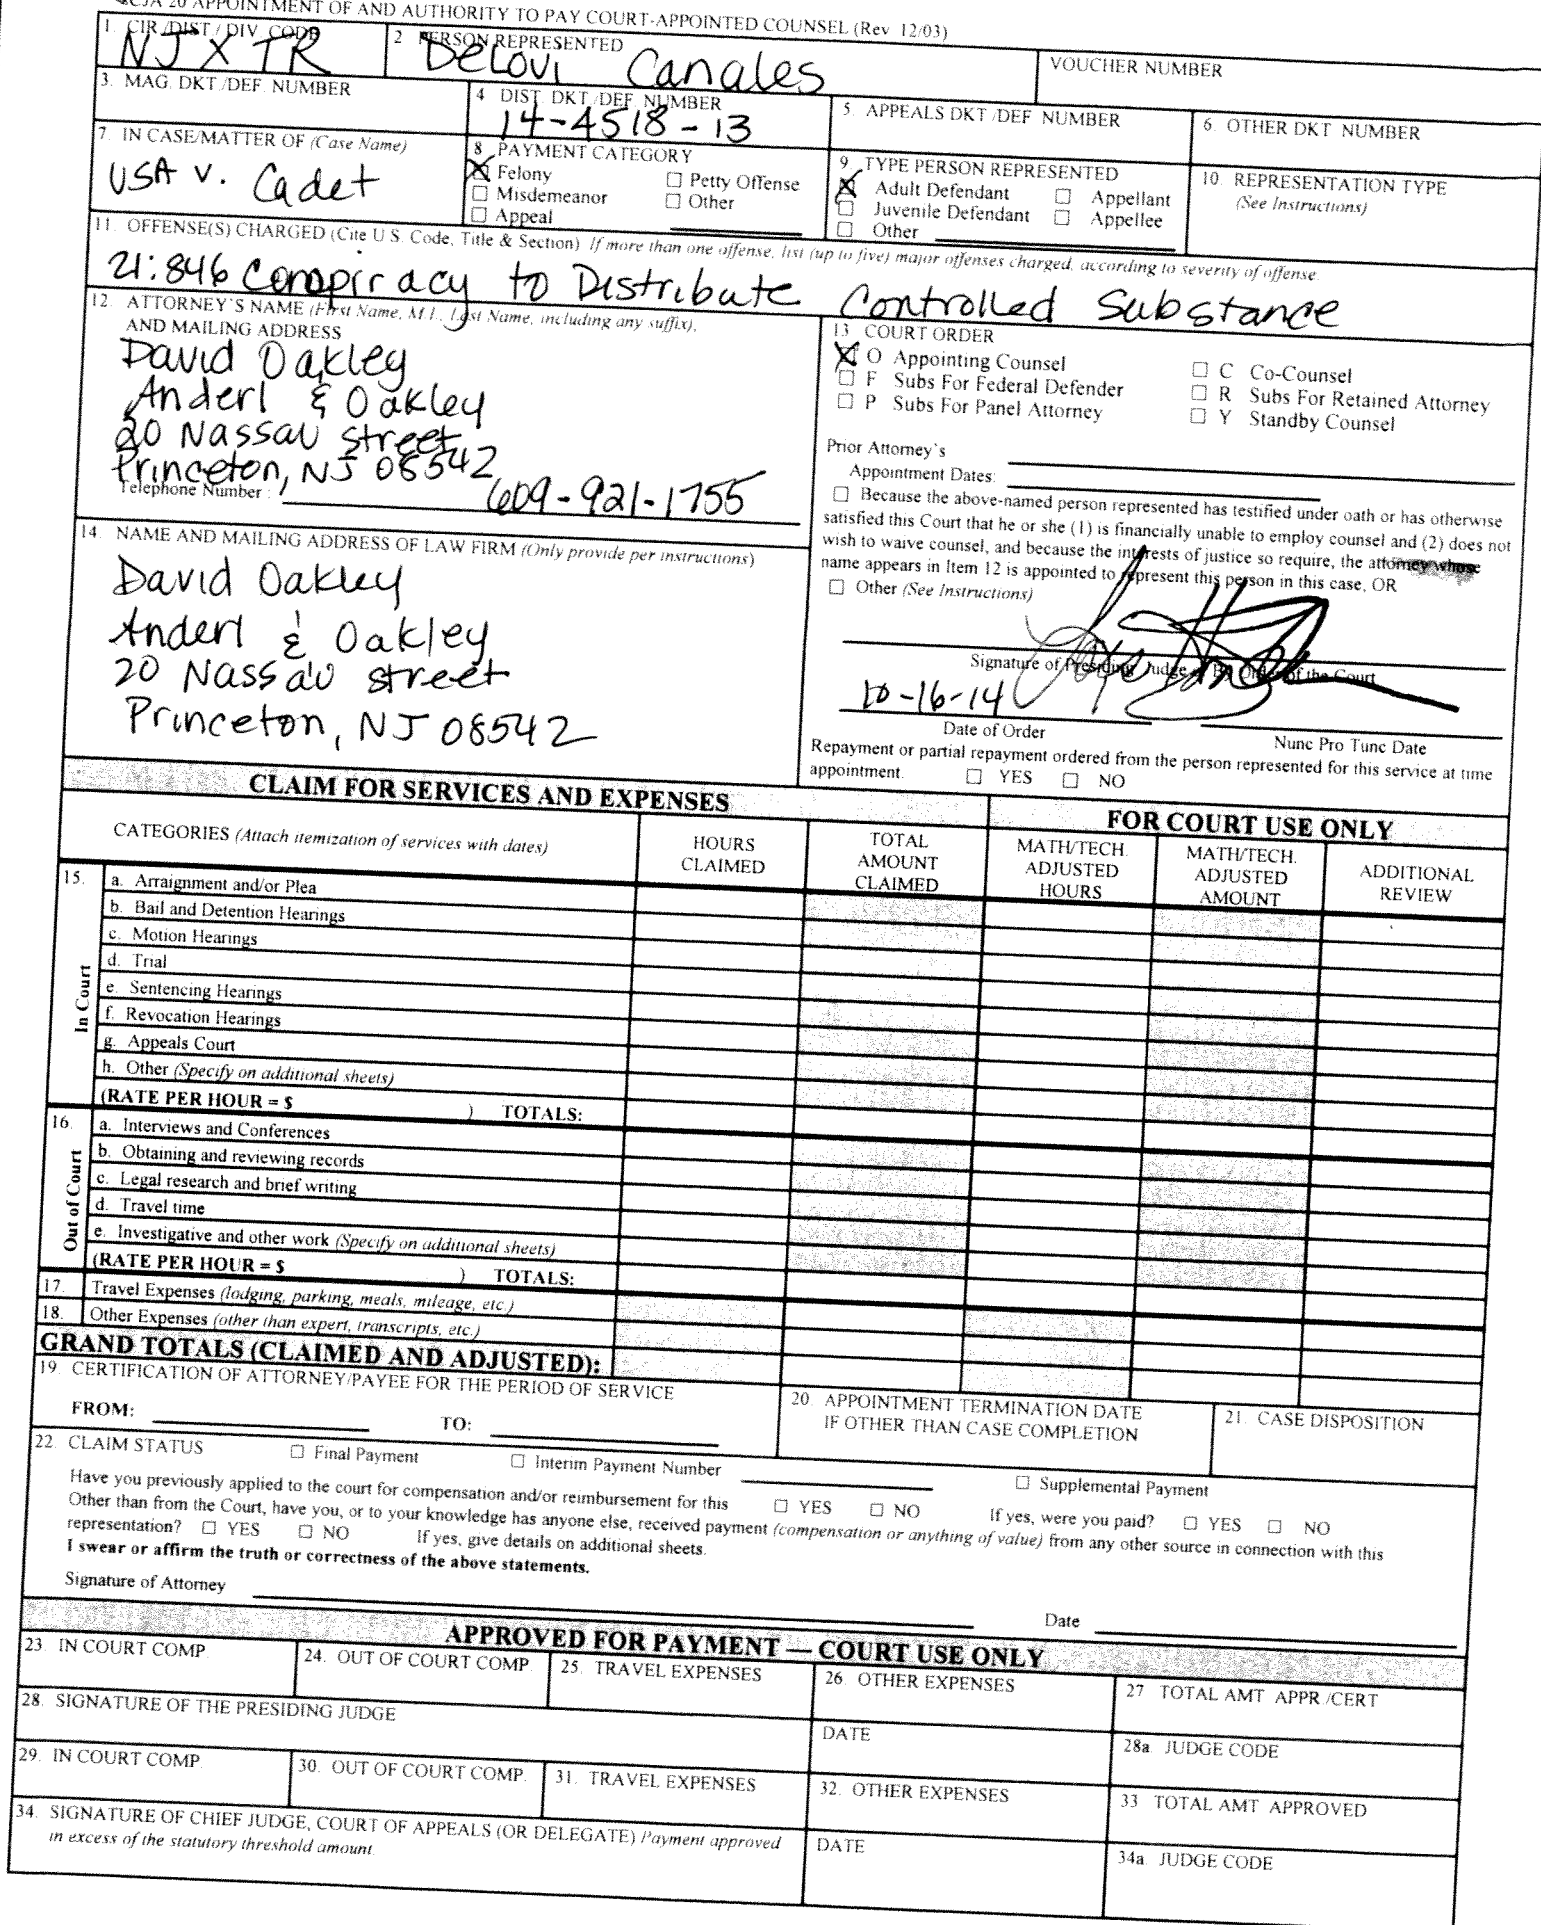 CJA 20 APPOINTMENT OF AND AUTHORITY TO PAY COURT-APPOINTED COUNSEL (Rev 12/03)
1. CIR./DIST./ DIV. CODE
NJXTR
2 PERSON REPRESENTED
Delovi Canales
VOUCHER NUMBER
3. MAG. DKT./DEF. NUMBER
4 DIST. DKT./DEF. NUMBER
14-4518-13
5. APPEALS DKT./DEF. NUMBER
6. OTHER DKT NUMBER
7. IN CASE/MATTER OF (Case Name)
USA v. Cadet
8. PAYMENT CATEGORY
☒ Felony ☐ Petty Offense
☐ Misdemeanor ☐ Other
☐ Appeal
9 TYPE PERSON REPRESENTED
☒ Adult Defendant ☐ Appellant
☐ Juvenile Defendant ☐ Appellee
☐ Other
10. REPRESENTATION TYPE
(See Instructions)
11. OFFENSE(S) CHARGED (Cite U.S. Code, Title & Section) If more than one offense, list (up to five) major offenses charged, according to severity of offense.
21:846 Conspiracy to Distribute Controlled Substance
12. ATTORNEY'S NAME (First Name, M.I., Last Name, including any suffix),
AND MAILING ADDRESS
David Oakley
Anderl & Oakley
20 Nassau street
Princeton, NJ 08542
Telephone Number : 609-921-1755
13 COURT ORDER
☒ O Appointing Counsel ☐ C Co-Counsel
☐ F Subs For Federal Defender ☐ R Subs For Retained Attorney
☐ P Subs For Panel Attorney ☐ Y Standby Counsel
Prior Attorney's
Appointment Dates:
☐ Because the above-named person represented has testified under oath or has otherwise
satisfied this Court that he or she (1) is financially unable to employ counsel and (2) does not
wish to waive counsel, and because the interests of justice so require, the attorney whose
name appears in Item 12 is appointed to represent this person in this case, OR
☐ Other (See Instructions)
Signature of Presiding Judge or By Order of the Court
10-16-14
Date of Order Nunc Pro Tunc Date
Repayment or partial repayment ordered from the person represented for this service at time
appointment. ☐ YES ☐ NO
14. NAME AND MAILING ADDRESS OF LAW FIRM (Only provide per instructions)
David Oakley
Anderl & Oakley
20 Nassau street
Princeton, NJ 08542
CLAIM FOR SERVICES AND EXPENSES
FOR COURT USE ONLY
CATEGORIES (Attach itemization of services with dates)
HOURS
CLAIMED
TOTAL
AMOUNT
CLAIMED
MATH/TECH.
ADJUSTED
HOURS
MATH/TECH.
ADJUSTED
AMOUNT
ADDITIONAL
REVIEW
15.
In Court
a. Arraignment and/or Plea
b. Bail and Detention Hearings
c. Motion Hearings
d. Trial
e. Sentencing Hearings
f. Revocation Hearings
g. Appeals Court
h. Other (Specify on additional sheets)
(RATE PER HOUR = $ ) TOTALS:
16.
Out of Court
a. Interviews and Conferences
b. Obtaining and reviewing records
c. Legal research and brief writing
d. Travel time
e. Investigative and other work (Specify on additional sheets)
(RATE PER HOUR = $ ) TOTALS:
17. Travel Expenses (lodging, parking, meals, mileage, etc.)
18. Other Expenses (other than expert, transcripts, etc.)
GRAND TOTALS (CLAIMED AND ADJUSTED):
19. CERTIFICATION OF ATTORNEY/PAYEE FOR THE PERIOD OF SERVICE
FROM: TO:
20. APPOINTMENT TERMINATION DATE
IF OTHER THAN CASE COMPLETION
21. CASE DISPOSITION
22. CLAIM STATUS ☐ Final Payment ☐ Interim Payment Number ☐ Supplemental Payment
Have you previously applied to the court for compensation and/or reimbursement for this ☐ YES ☐ NO If yes, were you paid? ☐ YES ☐ NO
Other than from the Court, have you, or to your knowledge has anyone else, received payment (compensation or anything of value) from any other source in connection with this
representation? ☐ YES ☐ NO If yes, give details on additional sheets.
I swear or affirm the truth or correctness of the above statements.
Signature of Attorney Date
APPROVED FOR PAYMENT — COURT USE ONLY
23. IN COURT COMP.
24. OUT OF COURT COMP.
25. TRAVEL EXPENSES
26. OTHER EXPENSES
27 TOTAL AMT APPR /CERT
28. SIGNATURE OF THE PRESIDING JUDGE
DATE
28a. JUDGE CODE
29. IN COURT COMP.
30. OUT OF COURT COMP.
31. TRAVEL EXPENSES
32. OTHER EXPENSES
33 TOTAL AMT APPROVED
34. SIGNATURE OF CHIEF JUDGE, COURT OF APPEALS (OR DELEGATE) Payment approved
in excess of the statutory threshold amount.
DATE
34a JUDGE CODE